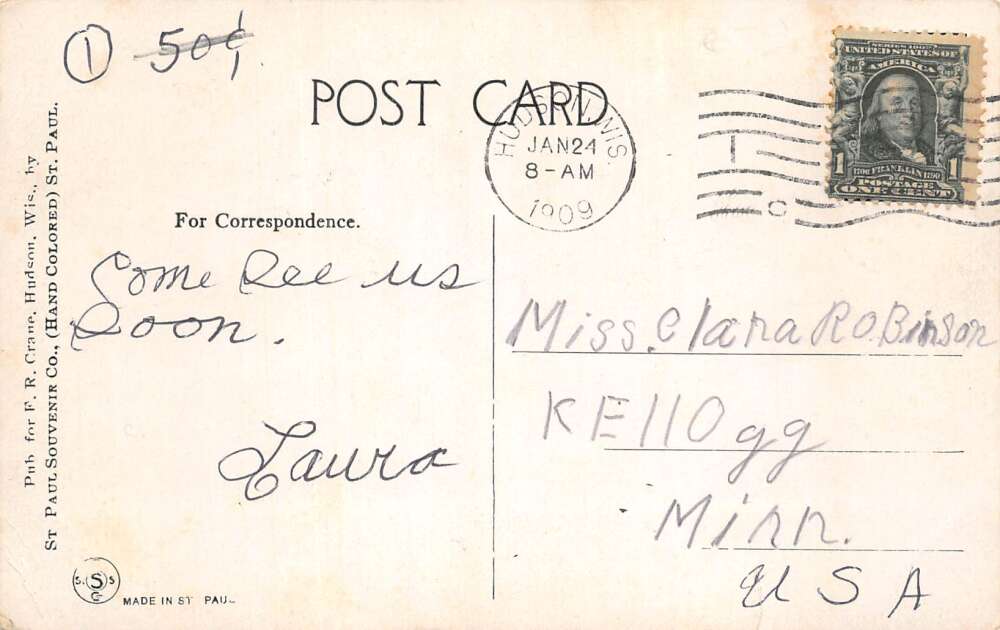 ① 50¢
POST CARD
HUDSON WIS
JAN 24
8-AM
1909
SERIES 1902
UNITED STATES OF
AMERICA
1706 FRANKLIN 1790
1 POSTAGE 1
ONE CENT
C
For Correspondence.
Come See us
Soon.
Laura
Miss. Clara ROBinson
KEllOgg
Minn.
U S A
Pub for F. R. Crane, Hudson, Wis., by
ST PAUL SOUVENIR CO., (HAND COLORED) ST. PAUL.
S. S S
C
MADE IN ST PAUL